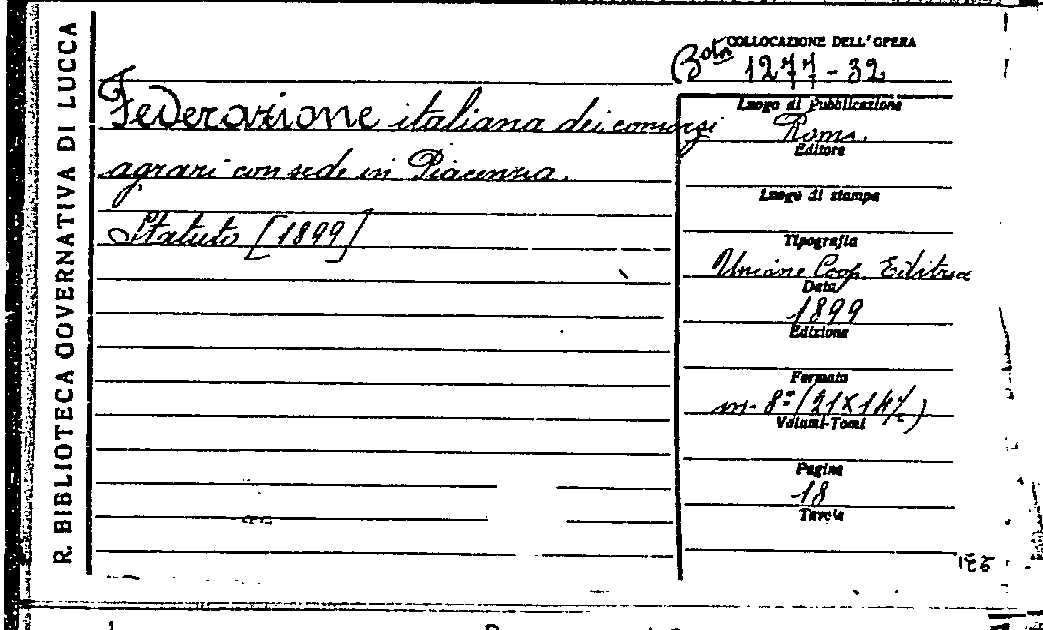 R. BIBLIOTECA GOVERNATIVA DI LUCCA
COLLOCAZIONE DELL'OPERA
1277-32
Federazione italiana dei consorzi
agrari con sede in Piacenza.
Statuto [1899]
Luogo di Pubblicazione
Roma.
Editore
Luogo di stampa
Tipografia
Unione Coop. Editrice
Data
1899
Edizione
Formato
in-8º (21X14½)
Volumi-Tomi
Pagine
18
Tavole